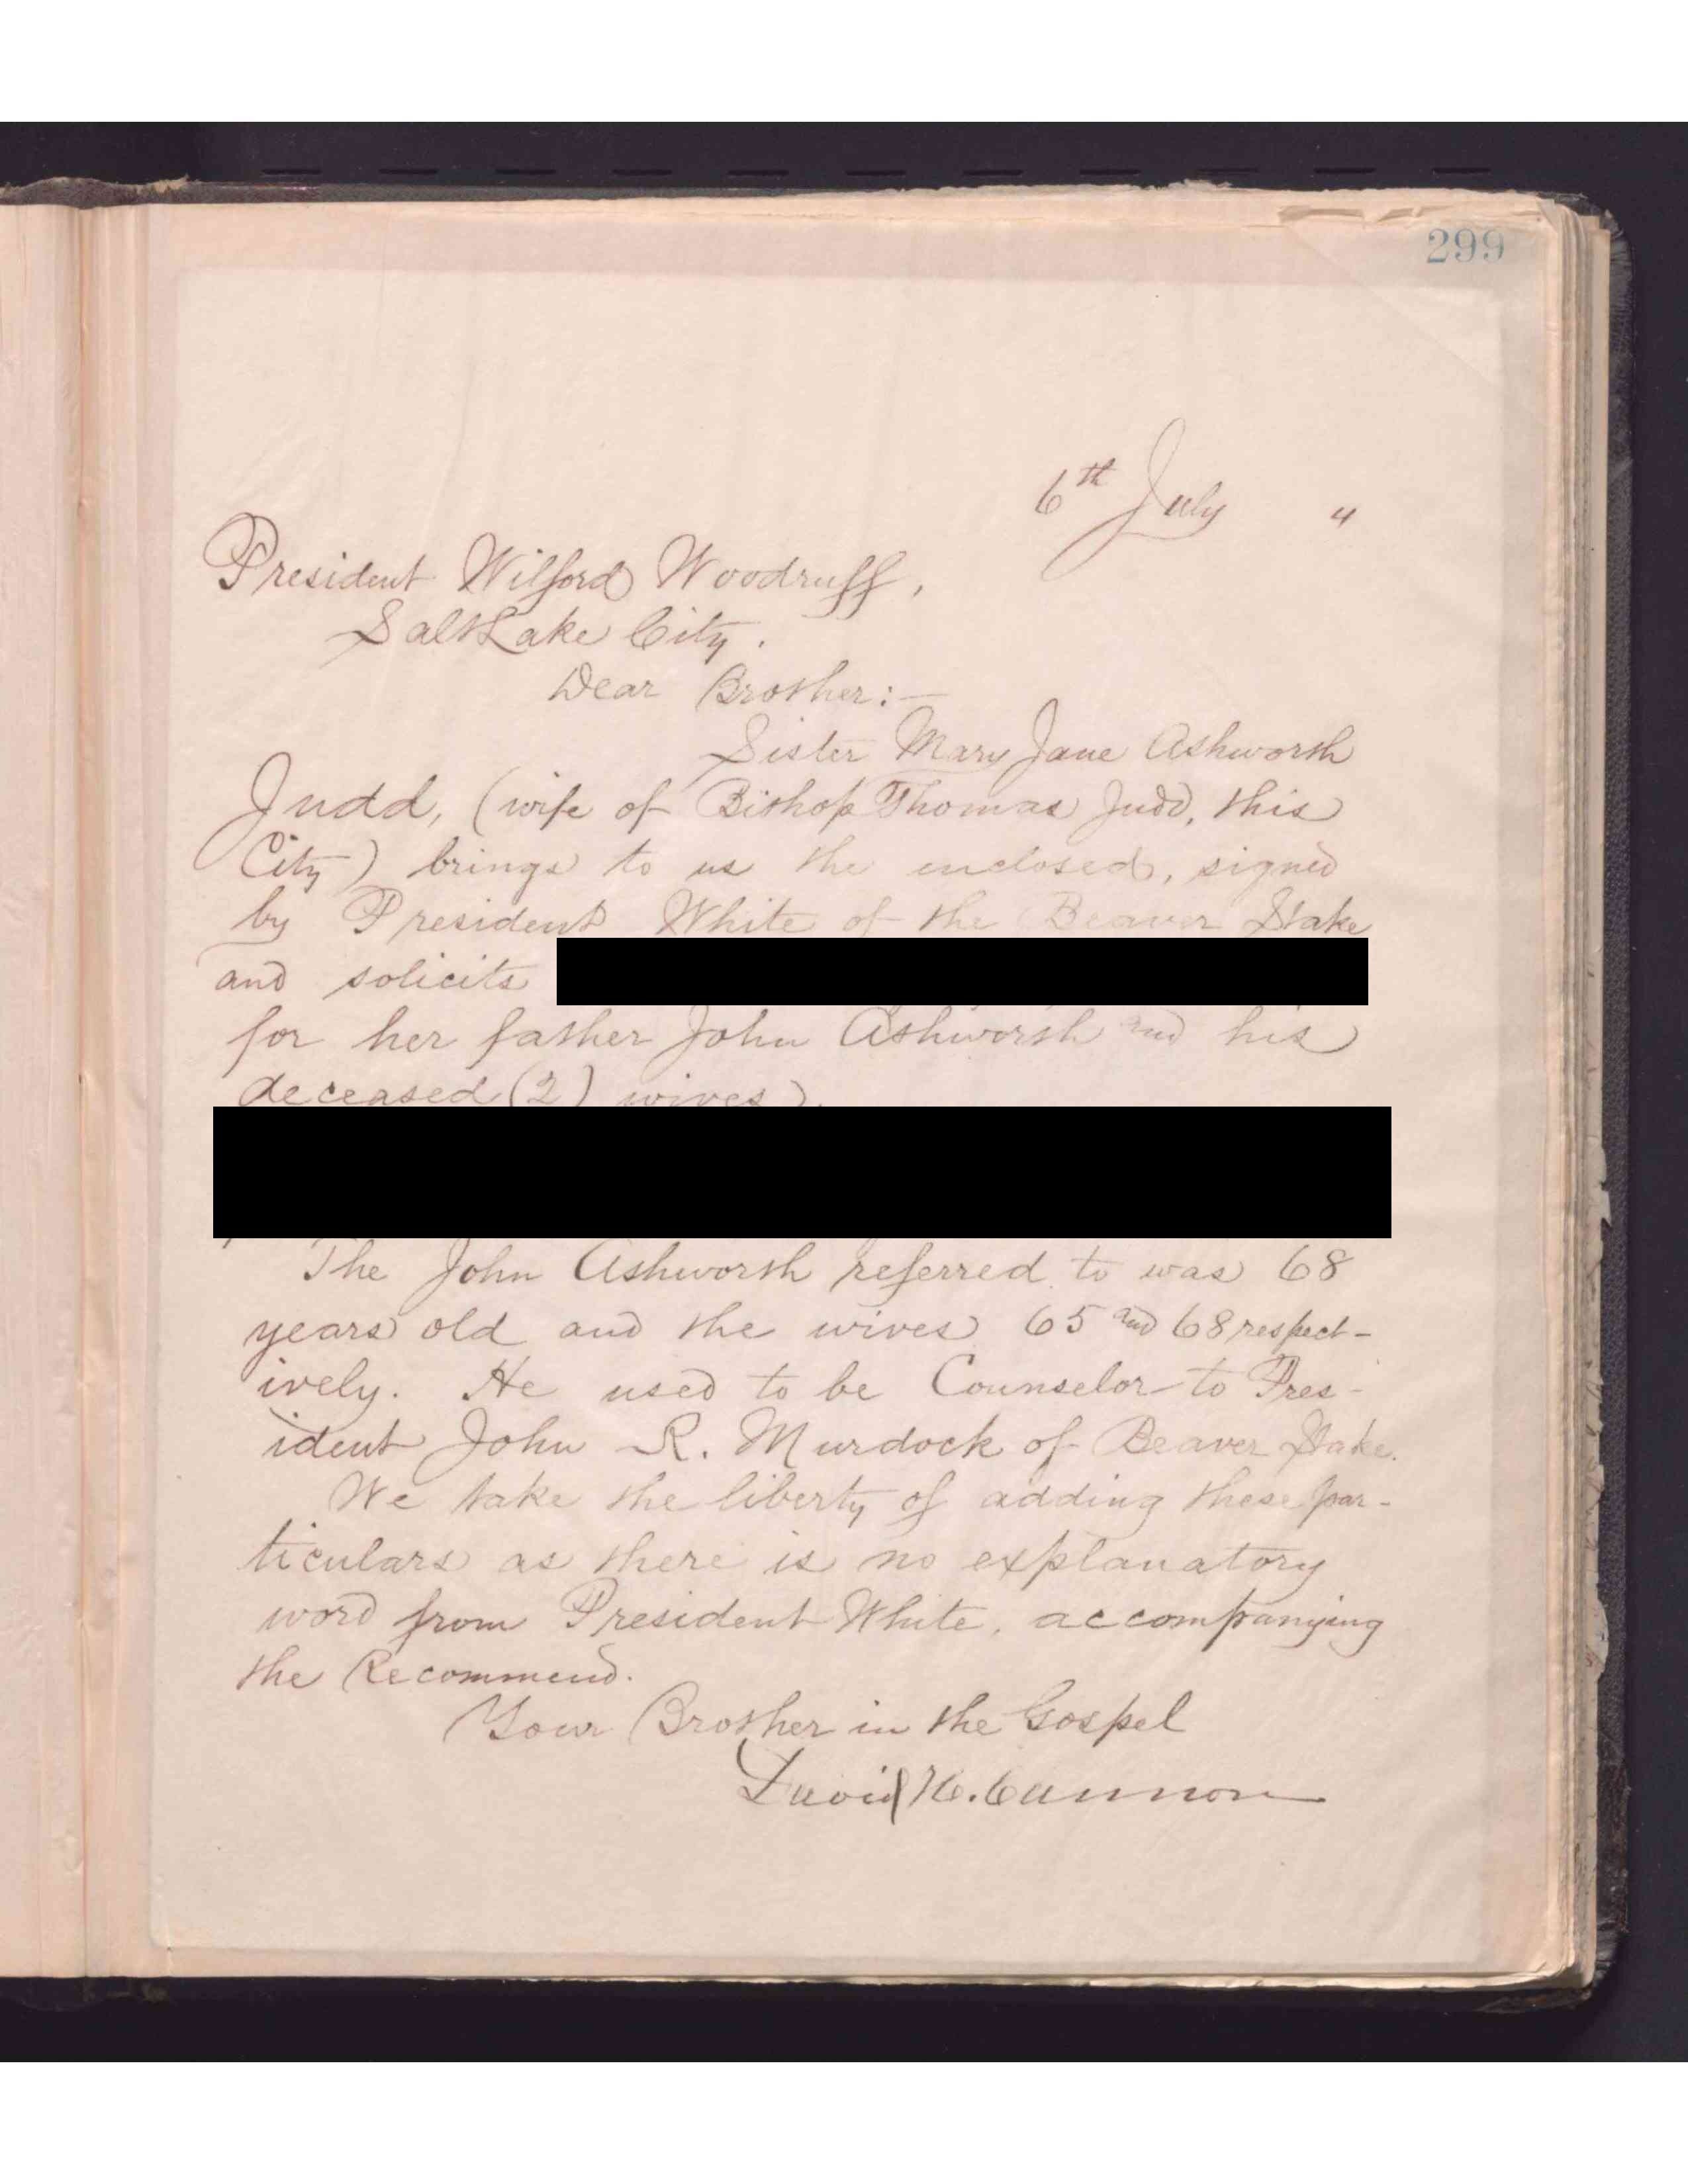 299
6th July 4
President Wilford Woodruff,
Salt Lake City.
Dear Brother:—
Sister Mary Jane Ashworth
Judd, (wife of Bishop Thomas Judd, this
City) brings to us the enclosed, signed
by President White of the Beaver Stake
and solicits
for her father John Ashworth and his
deceased (2) wives).
The John Ashworth referred to was 68
years old and the wives 65 and 68 respect-
ively. He used to be Counselor to Pres-
ident John R. Murdock of Beaver Stake.
We take the liberty of adding these par-
ticulars as there is no explanatory
word from President White, accompanying
the Recommend.
Your Brother in the Gospel
David H. Cannon